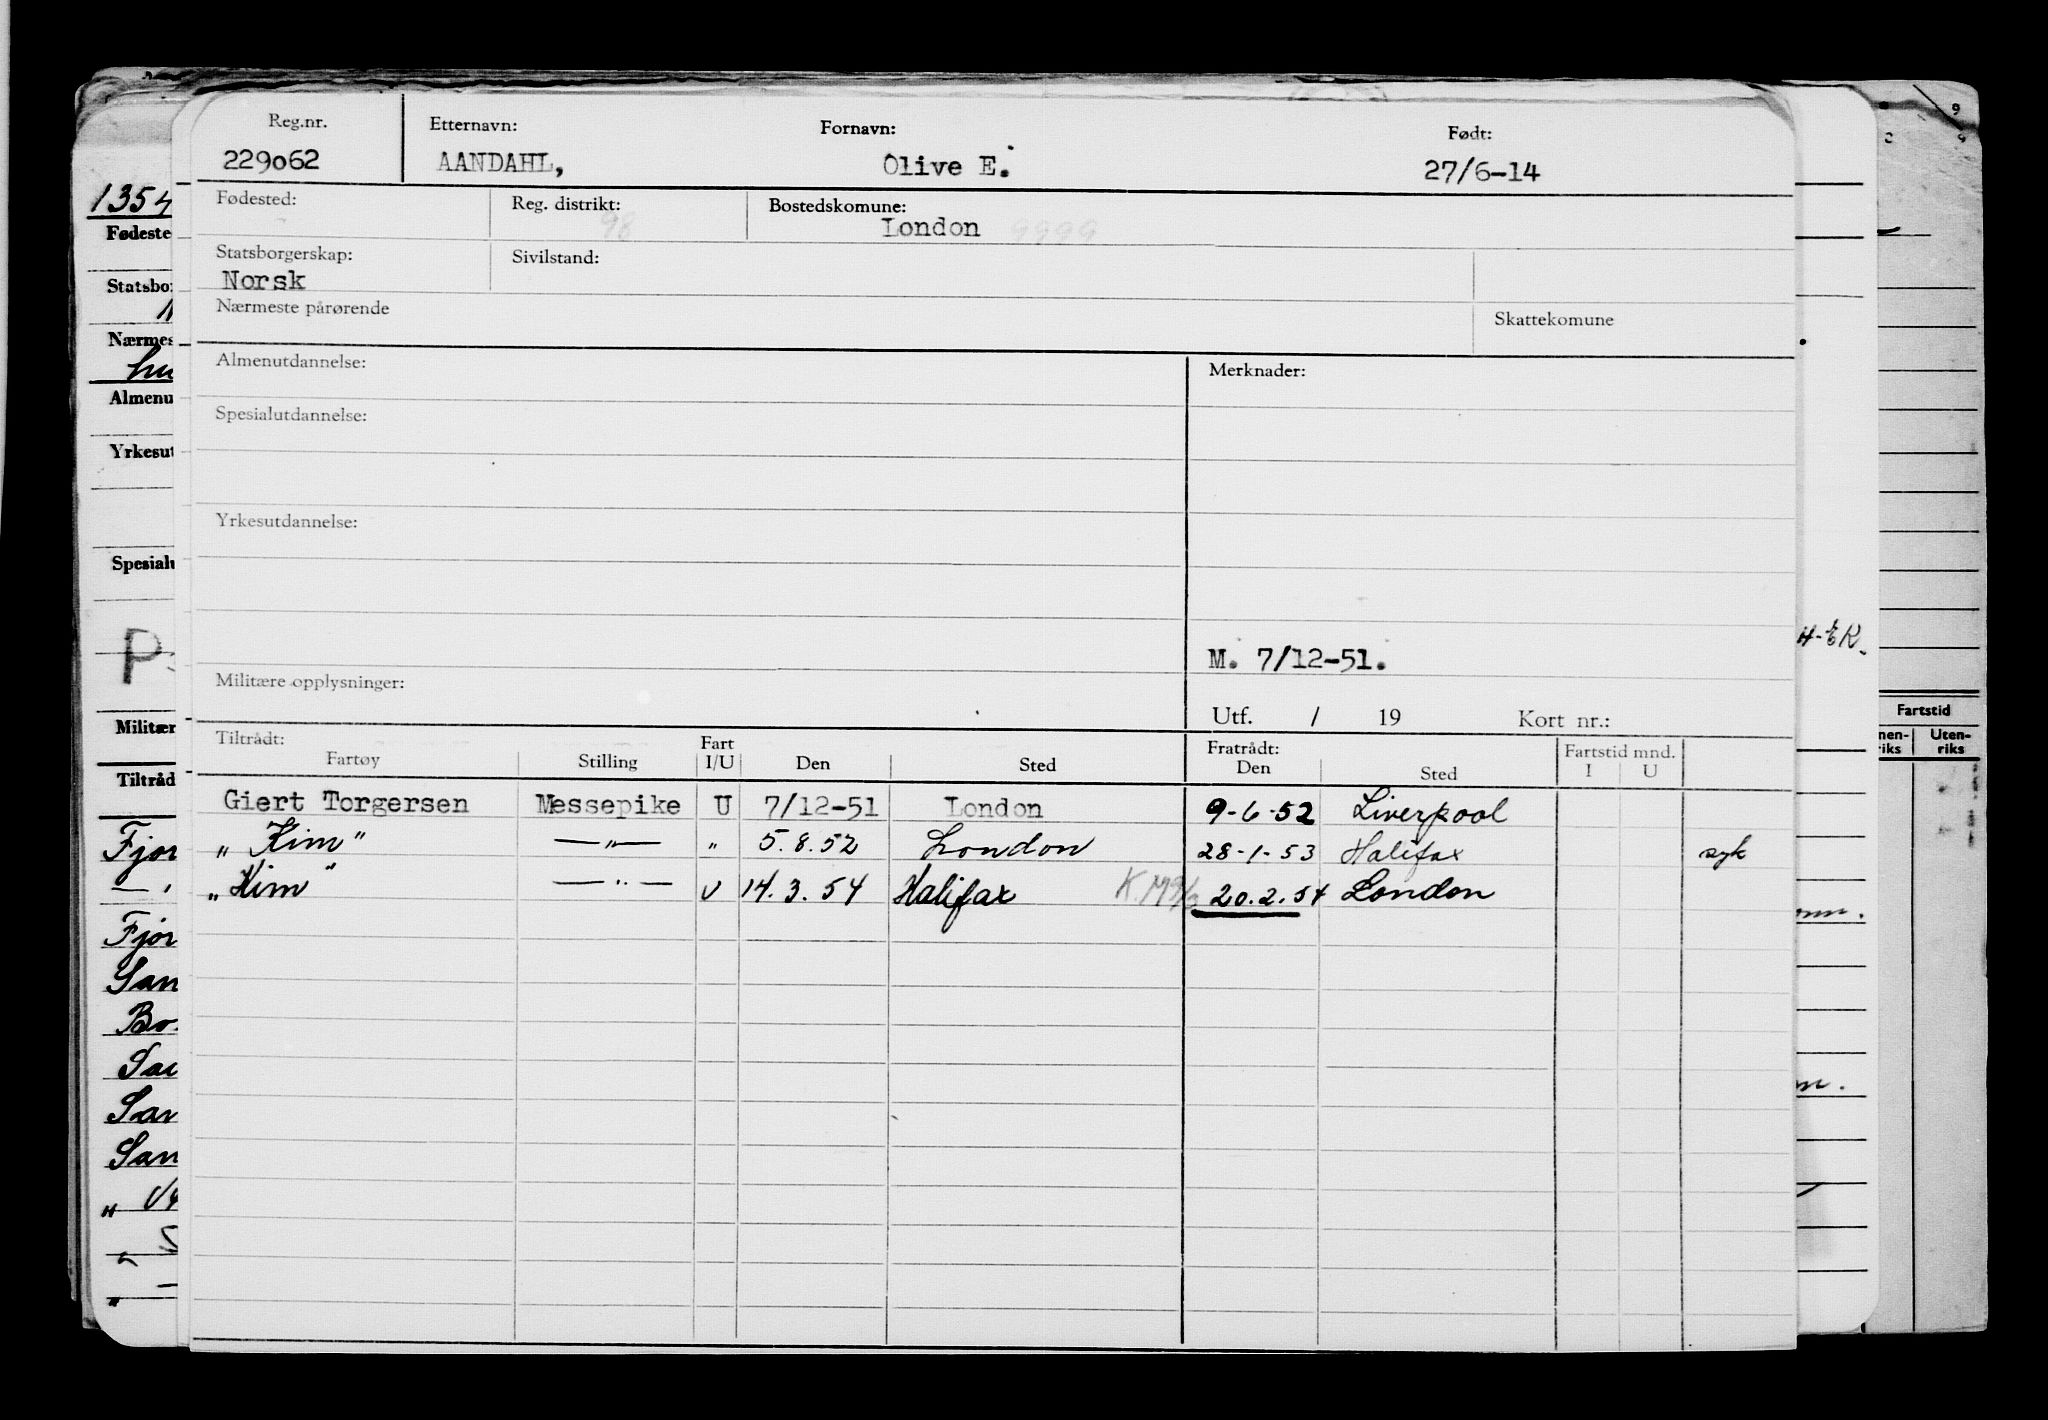 Reg.nr. Etternavn: Fornavn: Født:
229062 AANDAHL, Olive E. 27/6-14
Fødested: Reg. distrikt: Bostedskomune:
98 London 9999
Statsborgerskap: Sivilstand:
Norsk
Nærmeste pårørende Skattekomune
Almenutdannelse: Merknader:
Spesialutdannelse:
Yrkesutdannelse:
M. 7/12-51.
Militære opplysninger:
Utf. / 19 Kort nr.:
Tiltrådt: Fart Fratrådt: Fartstid mnd.
Fartøy Stilling I/U Den Sted Den Sted I U
Giert Torgersen Messepike U 7/12-51 London 9-6-52 Liverpool
„ Kim" —"— " 5.8.52 London 28-1-53 Halifax syk
„Kim" —"— U 14.3.54 Halifax 20.2.54 London
1354
Fødeste
Statsbo
Nærmes
hu
Almenu
Yrkesut
Spesialu
P
Militær
Tiltråd
Fjor
Fjor
San
Bo
San
San
H-EK.
Fartstid
nen-riks Uten-riks